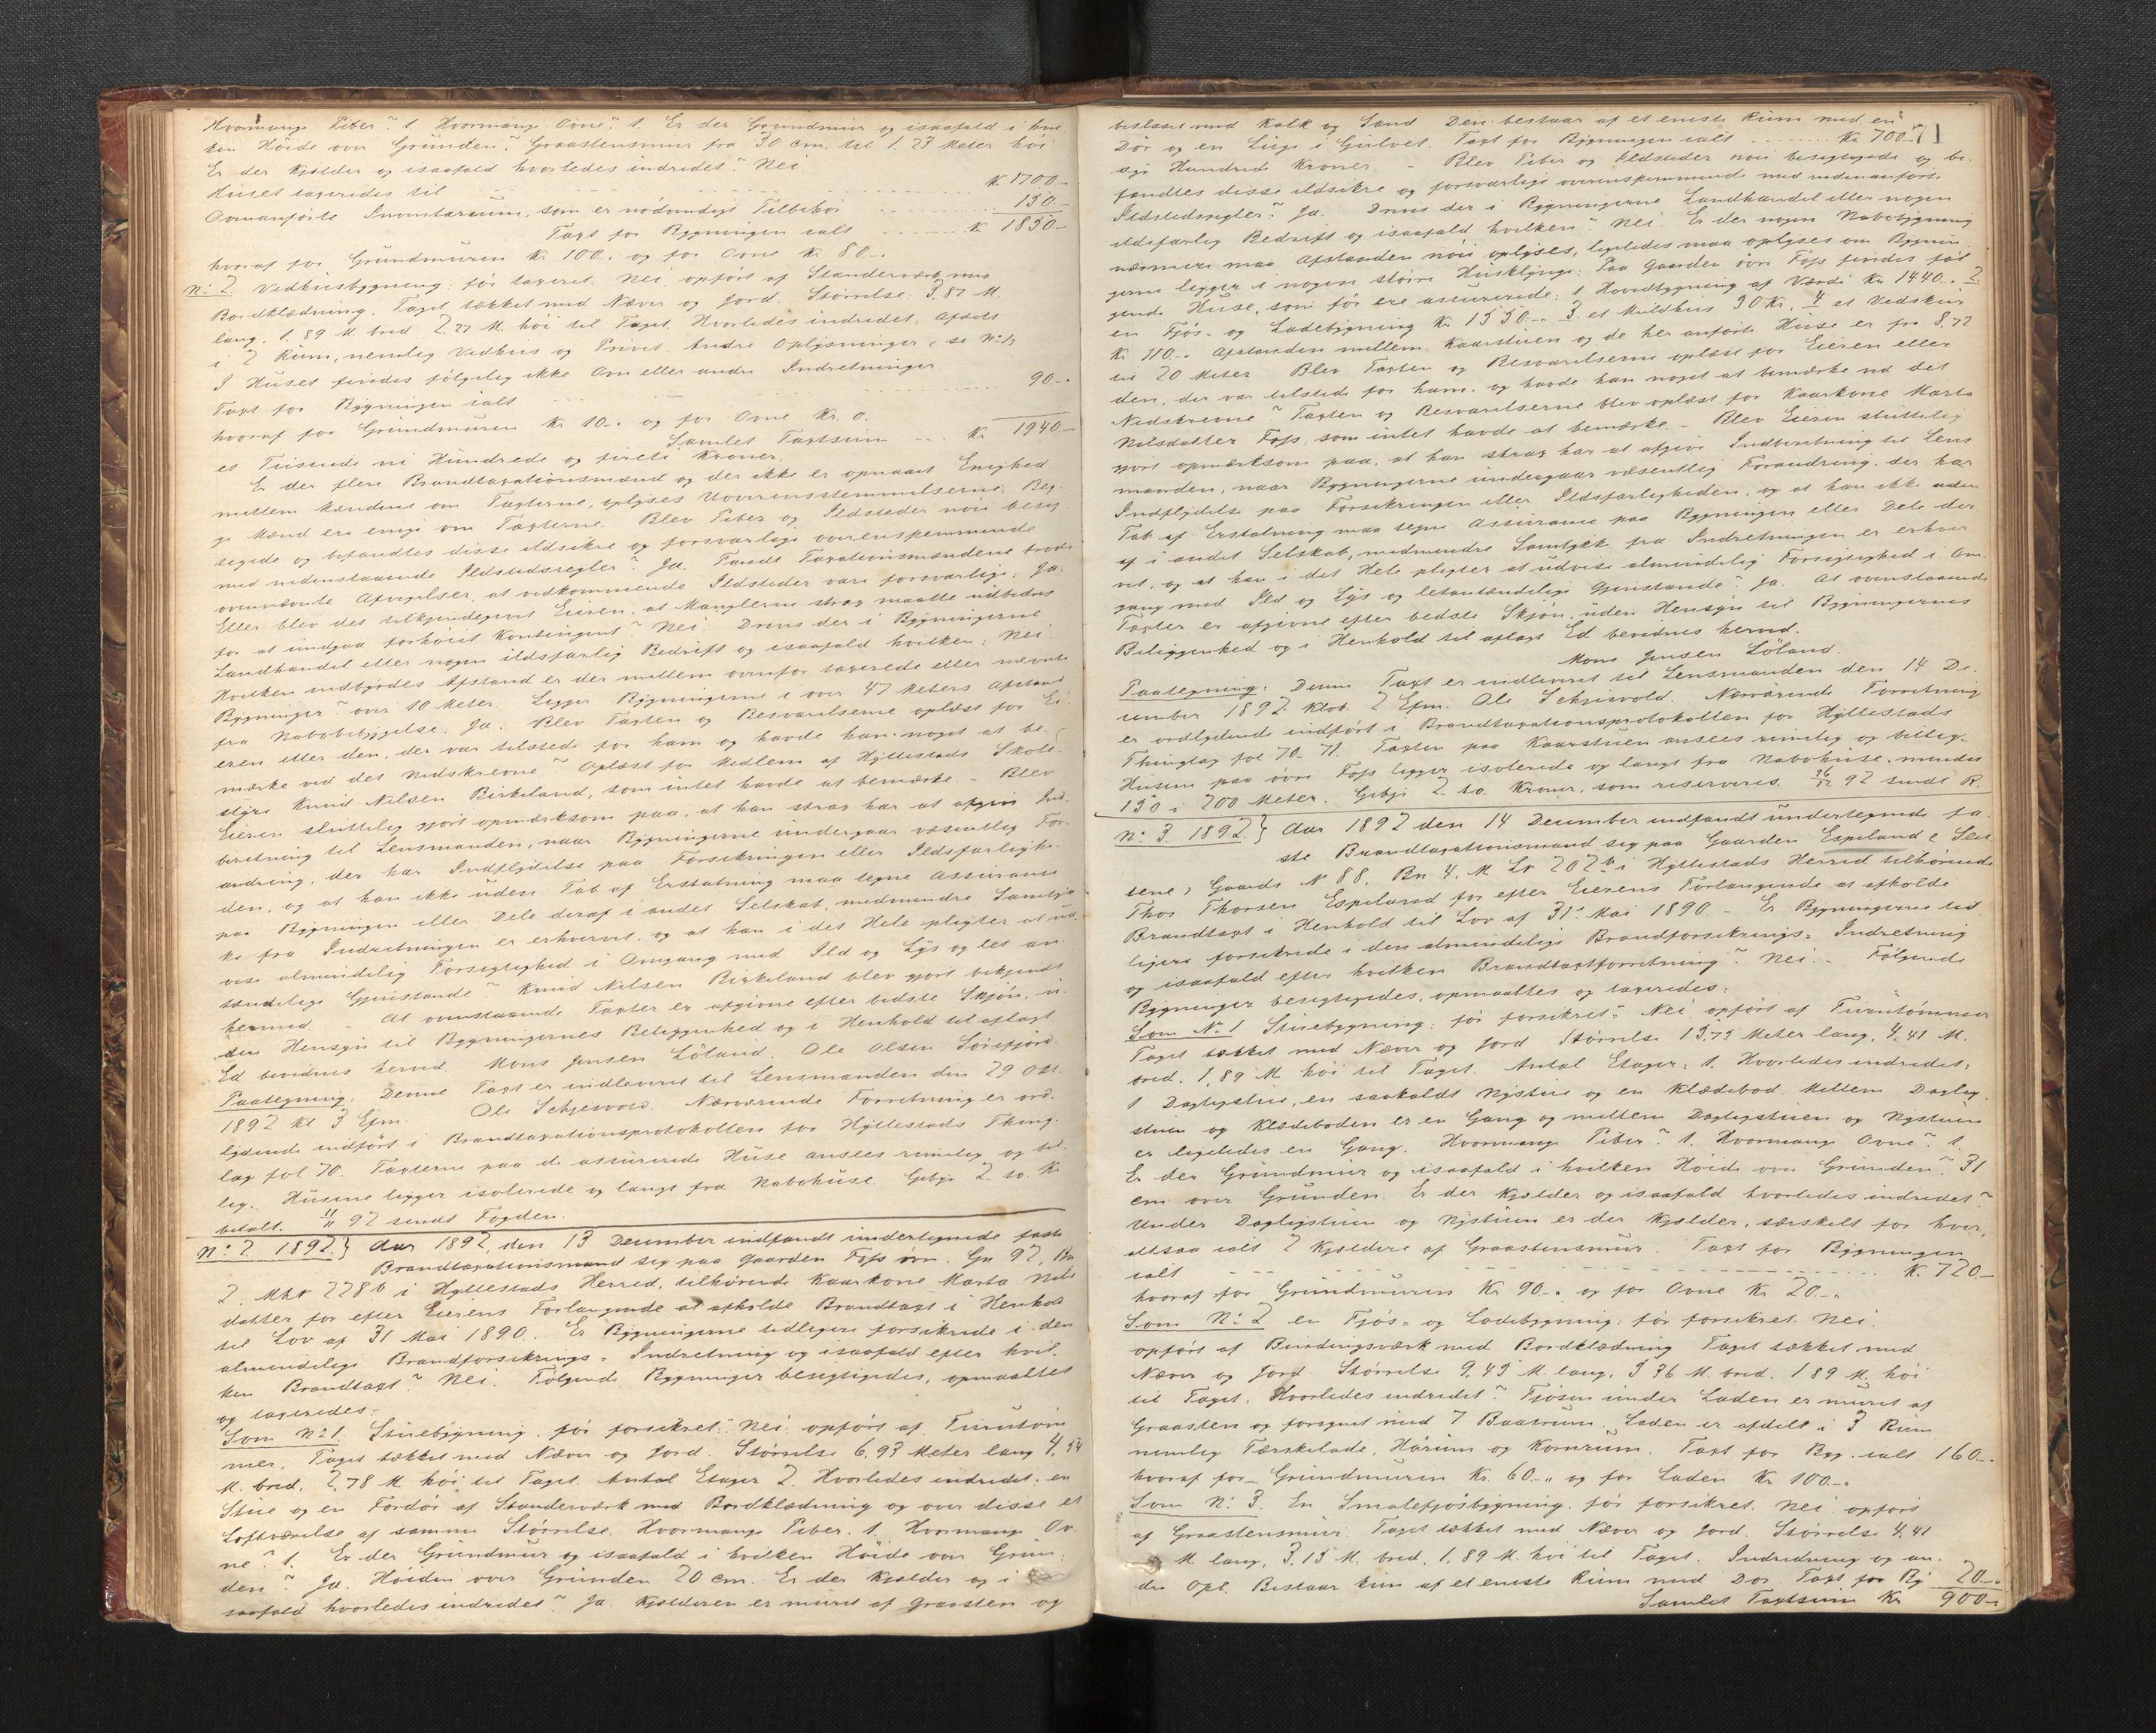 Hvormange Piber? 1. Hvormange Ovne? 1. Er der Grundmur og isaafald i hvil-
ken Höide over Grunden? Graastensmur fra 30 cm. til 1.23 Meter höi
Er der Kjelder og isaafald hvorledes indredet? Nei.
Huset taxeredes til Kr. 1700-
Ovenanförte Inventarium, som er nödvendigt Tilbehör 150-
Taxt for Bygningen ialt Kr 1850-
hvoraf for Grundmuren Kr 100.- og for Ovne Kr 80.-
No 2. Vedhusbygning: för taxeret. Nei. opfört af Standerværk med
Bordklædning. Taget tækket med Næver og Jord. Störrelse: 3,87 M.
lang, 1.89 M. bred, 2,27 M. höi til Taget. Hvorledes indredet. Afdelt
i 2 Rum, nemlig Vedhus og Privet. Andre Oplysninger (se No 1)
I Huset findes fölgelig ikke Ovn eller andre Indretninger
Taxt for Bygningen ialt 90.-
hvoraf for Grundmuren Kr 10.- og for Ovne Kr. 0.
Samlet Taxtsum Kr 1940-
et Tusende ni Hundrede og fireti Kroner.
Er der flere Brandtaxationsmænd og der ikke er opnaaet Enighed
mellem Mændene om Taxterne, oplyses Uoverensstemmelserne. Beg-
ge Mænd ere enige om Taxterne. Blev Piber og Ildsteder nöie besig-
tigede og befandtes disse ildsikre og forsvarlige overensstemmende
med nedenstaaende Ildstedsregler? Ja. Fandt Taxationsmændene trods
ovennævnte Afvigelser, at vedkommende Ildsteder vare forsvarlige: Ja.
Eller blev det tilkjendegivet Eieren, at Manglerne strax maatte udbedres
for at undgaa forhöiet Kontingent? Nei. Drives der i Bygningerne
Landhandel eller nogen ildsfarlig Bedrift og isaafald hvilken: Nei.
Hvilken indbyrdes Afstand er der mellem ovenfor taxerede eller nævnte
Bygninger? over 10 Meter. Ligger Bygningerne i over 47 Meters Afstand
fra Nabobebyggelse: Ja. Blev Taxten og Besvarelserne oplæst for Ei-
eren eller den, der var tilstede for ham og havde han noget at be-
mærke ved det Nedskrevne? Oplæst for Medlem af Hyllestads Skole-
styre Knud Nilsen Birkeland, som intet havde at bemærke. - Blev
Eieren sluttelig gjort opmærksom paa, at han strax har at afgive Ind-
beretning til Lensmanden, naar Bygningerne undergaar væsentlig For-
andring, der har Indflydelse paa Forsikringen eller Ildsfarlighe-
den, og at han ikke uden Tab af Erstatning maa tegne Assurance
paa Bygningen eller Dele deraf i andet Selskab, medmindre Samtyk-
ke fra Indretningen er erhvervet, og at han i det Hele pligter at ud-
vise almindelig Forsigtighed i Omgang med Ild og Lys og let an-
tændelige Gjenstande? Knud Nilsen Birkeland blev gjort bekjendt
hermed. - At ovenstaaende Taxter er afgivne efter bedste Skjön, u-
den Hensyn til Bygningernes Beliggenhed og i Henhold til aflagt
Ed bevidnes herved. Mons Jensen Löland. Ole Olsen Sörefjord.
Paategning: Denne Taxt er indleveret til Lensmanden den 29 Okt.
1892 Kl 3 Efm. Ole Schjesvold. Nærværende Forretning er ord-
lydende indfört i Brandtaxationsprotokollen for Hyllestads Thing-
lag fol 70. Taxterne paa de assurerede Huse ansees rimelig og bil-
lig. Husene ligger isolerede og langt fra Nabohuse. Gebyr 2 to Kr
betalt. 11/11 92 sendt Fogden.
No 2. 1892.} Aar 1892, den 13 December indfandt undertegnede faste
Brandtaxationsmand sig paa Gaarden Foss övre. Gn 92, Bn
2. MLN 228b i Hyllestads Herred, tilhörende Kaarkone Marta Nils-
datter for efter Eierens Forlangende at afholde Brandtaxt i Henhold
til Lov af 31 Mai 1890. Er Bygningerne tidligere forsikrede i den
almindelige Brandforsikrings-Indretning og isaafald efter hvil-
ken Brandtaxt? Nei. Fölgende Bygninger besigtigedes, opmaaltes
og taxeredes:
Som No 1. Stuebygning. för forsikret: Nei. opfört af Furutöm-
mer, Taget tækket med Næver og Jord. Störrelse 6,93 Meter lang 4,54
M. bred, 2,78 M höi til Taget. Antal Etager 2. Hvorledes indredet: en
Stue og en Fordör af Standerværk med Bordklædning og over disse et
Loftværelse af samme Störrelse. Hvormange Piber. 1. Hvormange Ov-
ne? 1. Er der Grundmur og isaafald i hvilken Höide over Grun-
den? Ja. Höiden over Grunden 20 cm. Er der Kjelder og i
saafald hvorledes indredet? Ja. Kjelderen er muret af Graasten og
71
beslaaet med Kalk og Sand Den bestaar af et eneste Rum med en
Dör og en Luge i Gulvet. Taxt for Bygningen ialt Kr 700.-
syv Hundrede Kroner. - Blev Piber og Ildsteder nöie besigtigede og be-
fandtes disse ildsikre og forsvarlige overensstemmende med nedenanförte
Ildstedsregler? Ja. Drives der i Bygningerne Landhandel eller nogen
ildsfarlig Bedrift og isaafald hvilken? Nei. Er der nogen Nabobygning
nærmere maa Afstanden nöie oplyses, ligeledes maa oplyses om Bygnin-
gerne ligger i nogen större Husklynge: Paa Gaarden övre Foss findes föl-
gende Huse, som för ere assurerede: 1 Hovedbygning af Værdi Kr 1440.- 2
en Fjös- og Ladebygning Kr 1550.- 3. et Kuldhus 30 Kr. 4 et Vedskur
Kr 110.- Afstanden mellem Kaarstuen og de her anförte Huse er fra 8,72
til 20 Meter Blev Taxten og Besvarelserne oplæst for Eieren eller
den, der var tilstede for ham, og havde han noget at bemærke ved det
Nedskrevne? Taxten og Besvarelserne blev oplæst for Kaarkone Marta
Nilsdatter Foss, som intet havde at bemærke. - Blev Eieren sluttelig
gjort opmærksom paa, at han strax har at afgive Indberetning til Lens-
manden, naar Bygningerne undergaar væsentlig Forandring, der har
Indflydelse paa Forsikringen eller Ildsfarligheden, og at han ikke uden
Tab af Erstatning maa tegne Assurance paa Bygningen eller Dele der-
af i andet Selskab, medmindre Samtykke fra Indretningen er erhver-
vet, og at han i det Hele pligter at udvise almindelig Forsigtighed i Om-
gang med Ild og Lys og letantændelige Gjenstande? Ja. At ovenstaaende
Taxter er afgivne efter bedste Skjön, uden Hensyn til Bygningernes
Beliggenhed og i Henhold til aflagt Ed bevidnes herved.
Mons Jensen Löland.
Paategning: Denne Taxt er indleveret til Lensmanden den 14 De-
cember 1892 Klok. 2 Efm. Ole Schjesvold. Nærværende Forretning
er ordlydende indfört i Brandtaxationsprotokollen for Hyllestads
Thinglag fol 70-71. Taxten paa Kaarstuen ansees rimelig og billig.
Husene paa övre Foss ligger isolerede og langt fra Nabohuse, mindst
150 á 200 Meter. Gebyr 2 to Kroner, som reserveres. 16/12 92 sendt R.
No 3. 1892.} Aar 1892 den 14 December indfandt undertegnede fa-
ste Brandtaxationsmand sig paa Gaarden Espeland (
Gaards N 88. Bn 4. M Lr 202b i Hyllestads Herred tilhörende
Thor Thorsen Espeland for efter Eierens Forlangende at afholde
Brandtaxt i Henhold til Lov af 31te Mai 1890 - Er Bygningerne tid-
ligere forsikrede i den almindelige Brandforsikrings-Indretning
og isaafald efter hvilken Brandtaxtforretning? Nei. - Fölgende
Bygninger besigtigedes, opmaaltes og taxeredes:
Som No 1 Stuebygning: för forsikret? Nei. opfört af Furutömmer
Taget tækket med Næver og Jord Störrelse 13,73 Meter lang, 4,41 M.
bred. 1,89 M höi til Taget. Antal Etager: 1. Hvorledes indredet:
1 Dagligstue, en saakaldt Nystue og en Klædebod. Mellem Daglig-
stuen og Klædeboden er en Gang og mellem Dagligstuen og Nystuen
er ligeledes en Gang. Hvormange Piber? 1. Hvormange Ovne? 1.
Er der Grundmur og isaafald i hvilken Höide over Grunden? 31
cm over Grunden. Er der Kjelder og isaafald hvorledes indredet?
Under Dagligstuen og Nystuen er der Kjelder, særskilt for hver,
altsaa ialt 2 Kjeldere af Graastensmur. Taxt for Bygningen
ialt Kr. 720-
hvoraf for Grundmuren Kr 90.- og for Ovne Kr 20.-
Som No 2 en Fjös- og Ladebygning: för forsikret. Nei.
opfört af Bindingsværk med Bordklædning Taget tækket med
Næver og Jord. Störrelse 9,45 M. lang, 5 36 M. bred. 1 89 M. höi
til Taget. Hvorledes indredet? Fjösen under Laden er muret af
Graasten og forsynet med 7 Baasrum. Laden er afdelt i 3 Rum
nemlig Tærskelade, Hörum og Kornrum. Taxt for Byg. ialt 160.-
hvoraf for Grundmuren Kr. 60.- og for Laden Kr 100.-
Som No 3. En Smalefjösbygning. för forsikret. Nei opfört
af Graastensmur. Taget tækket med Næver og Jord. Störrelse 4,41
M. lang, 3,15 M. bred, 1,89 M. höi til Taget. Indredning og an-
dre Opl. Bestaar kun af et eneste Rum med Dör. Taxt for By 20.-
Samlet Taxtsum Kr 900-